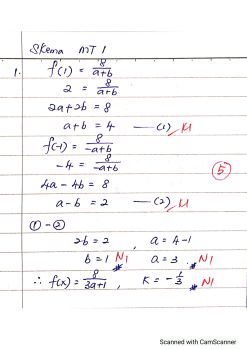 Skema MT 1
1. f(1) = 8/a+b
2 = 8/a+b
2a+2b = 8
a+b = 4 —(1) M
f(-1) = 8/-a+b
-4 = 8/-a+b
5
4a - 4b = 8
a-b = 2 —(2) M
① - ②
2b = 2 , a = 4-1
b = 1 N1 a = 3 . N1
∴ f(x) = 8/3a+1 , K = -1/3 N1
Scanned with CamScanner